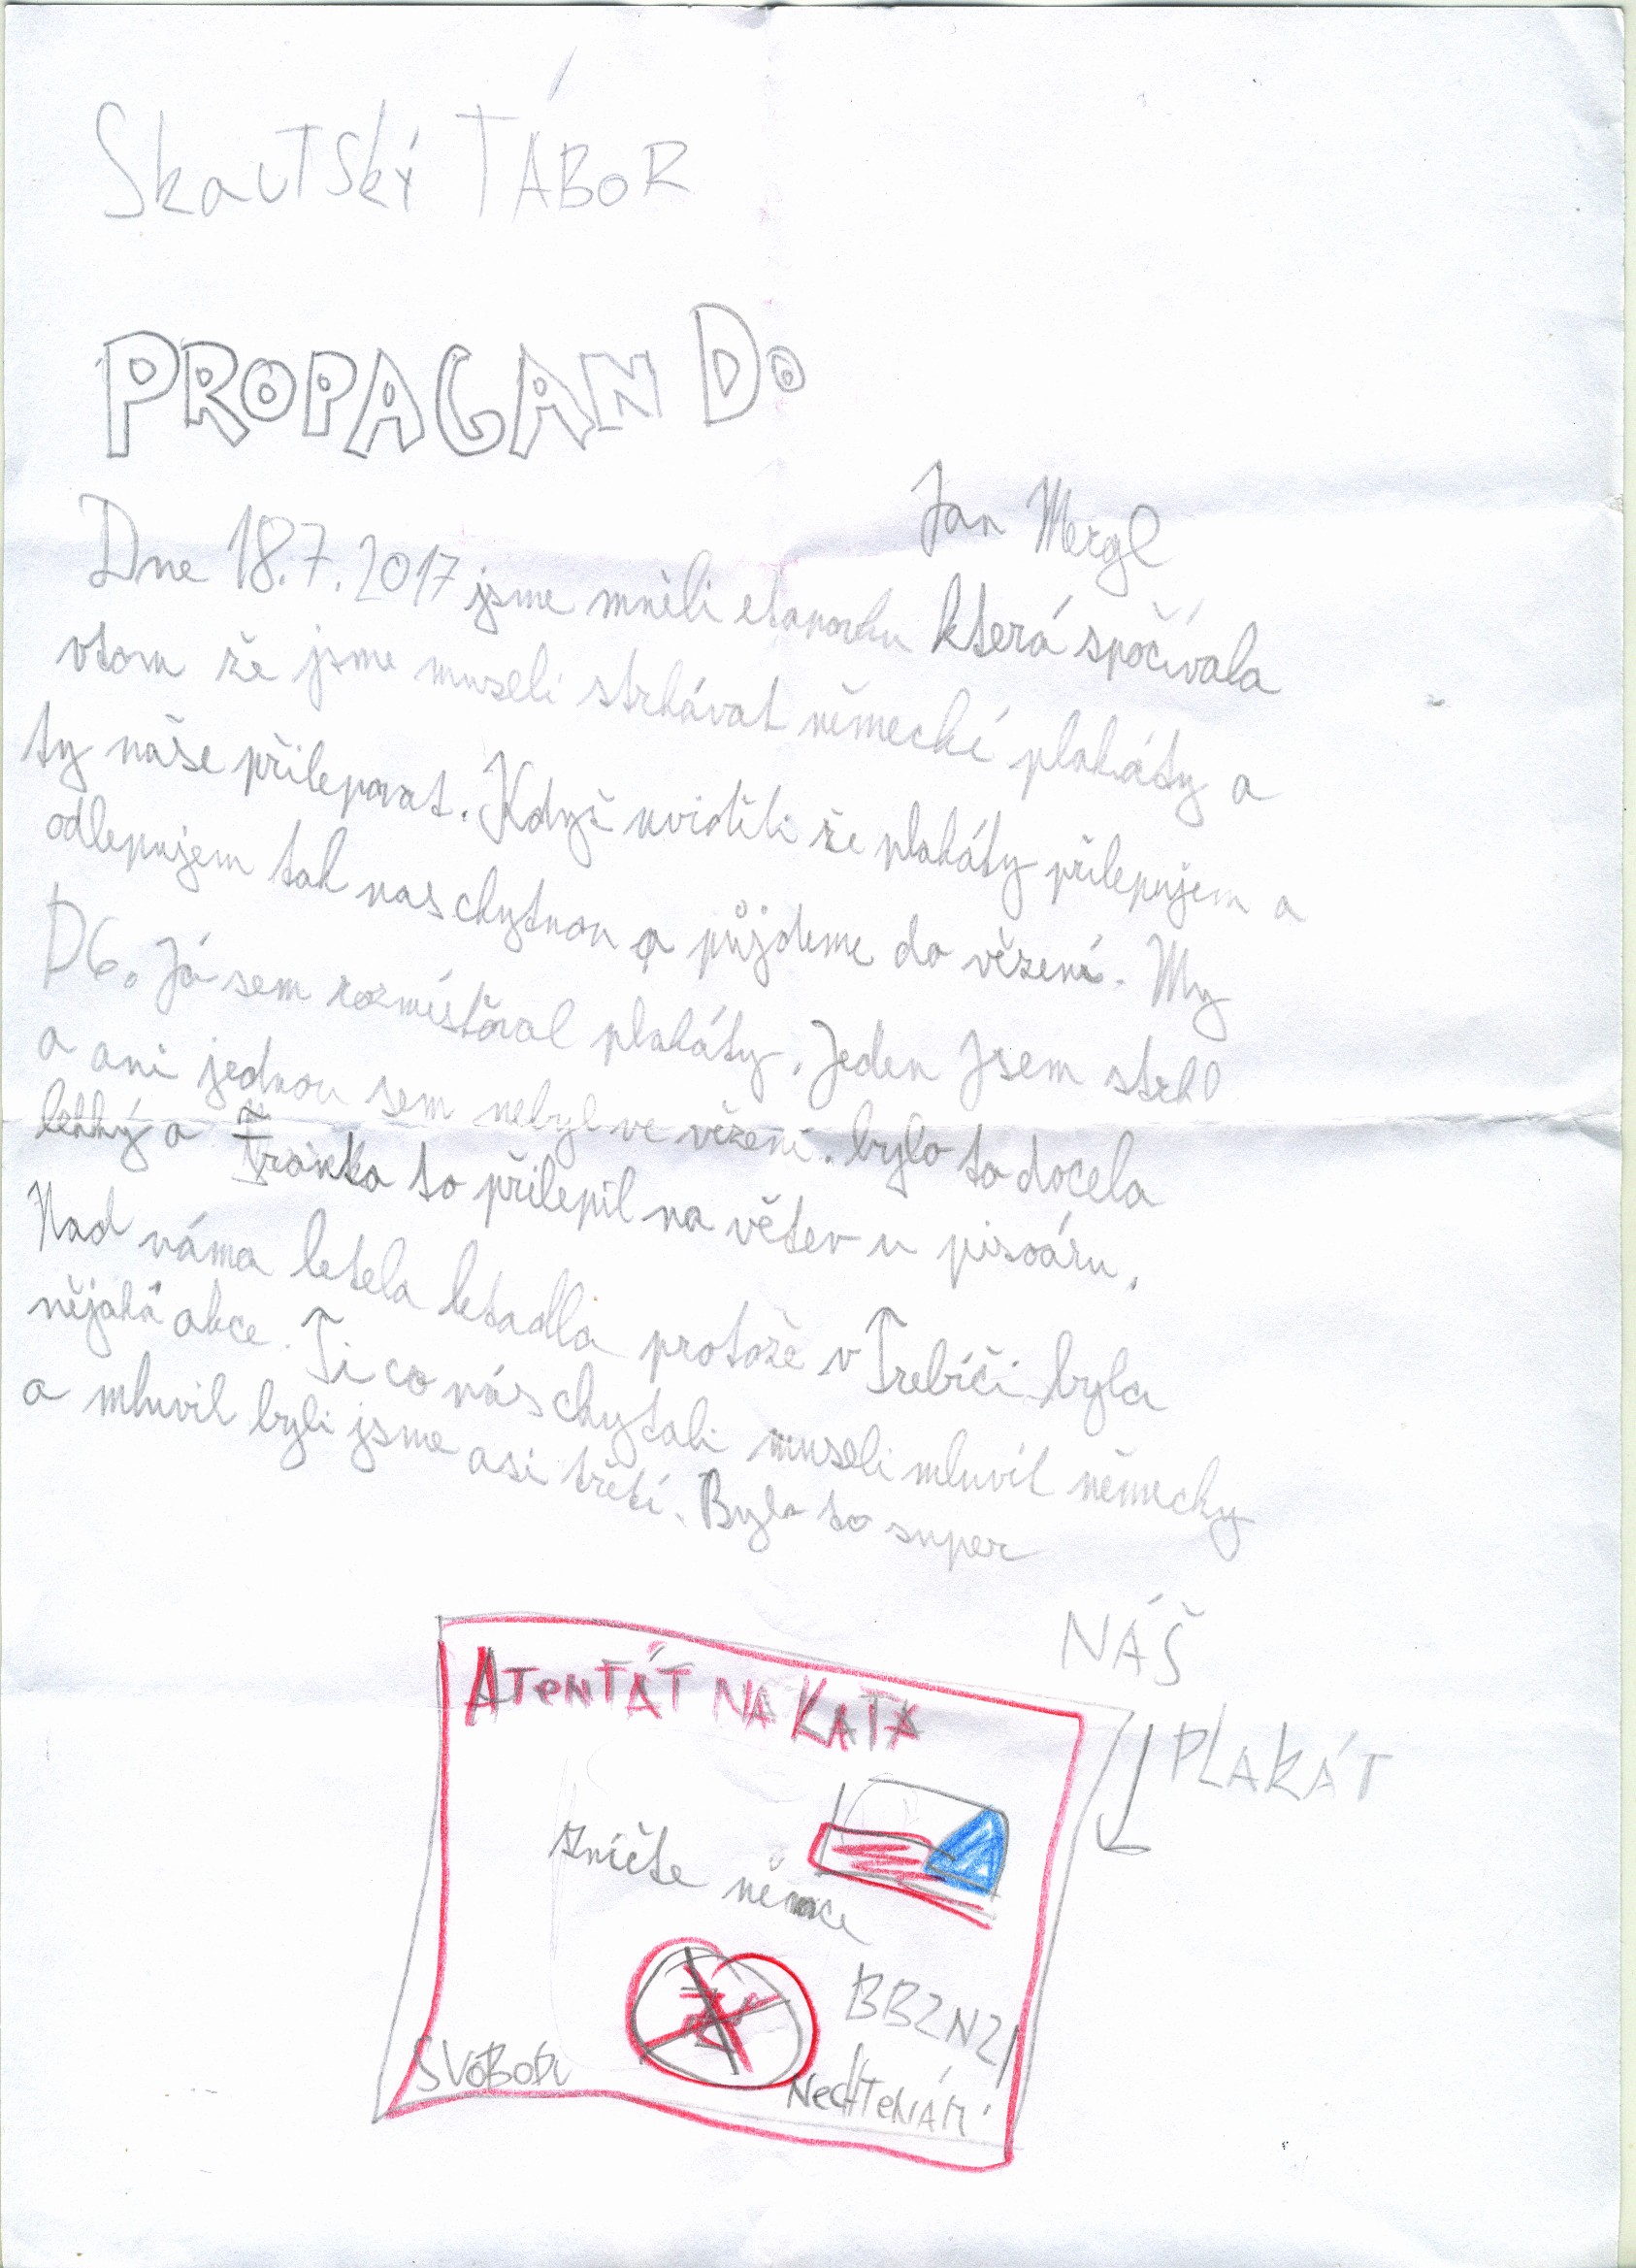 Skautský TÁBOR
PROPAGANDo
Jan Mergl
Dne 18.7.2017 jsme mněli etapovku která spočívala
vtom že jsme museli strhávat německé plakáty a
ty naše přilepovat. Když uviděli že plakáty přilepujem a
odlepujem tak nas chytnou a půjdeme do vězení. My
Já sem rozmísťoval plakáty. Jeden jsem strhl
a ani jednou sem nebyl ve vězení. bylo to docela
lehký a Franta to přilepil na větev u pisoáru.
Nad náma letěla letadla protože v Třebíči byla
nějaká akce. Ti co nás chytali museli mluvit německy
a mluvil byli jsme asi třetí. Bylo to super
NÁŠ
PLAKÁT
ATENTÁT NA KATA
zničte němce
SVOBODU NECHTE NÁM